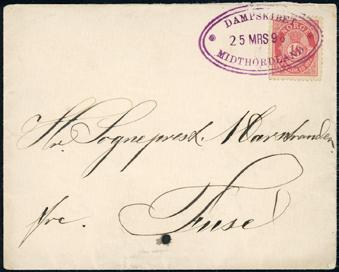 DAMPSKIBET
25 MRS 98
MIDTHORDLAND
10
Hr. Sogneprest Marstrander
pr
Fuse